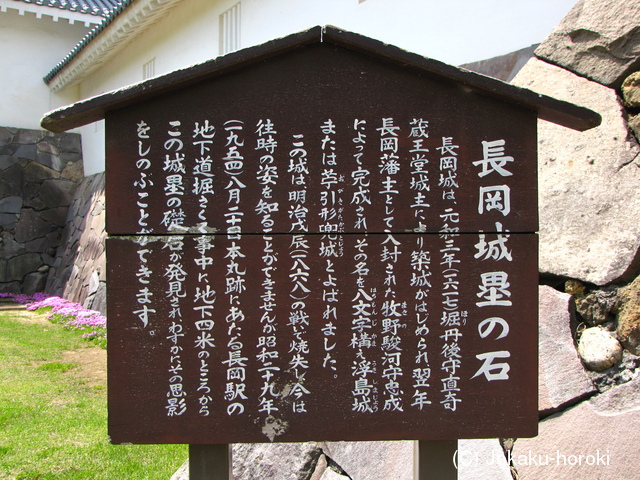 長岡城塁の石
長岡城は、元和三年(一六一七)堀丹後守直奇
ほり
蔵王堂城主により築城がはじめられ翌年
長岡藩主として入封された牧野駿河守忠成
まきの
によって完成され、その名を八文字構え浮島城
はちもんじがまえ うきしまじょう
または苧引形兜城とよばれました。
おびきがたかぶとじょう
この城は明治戊辰(一八六八)の戦いで焼失し今は
往時の姿を知ることができませんが昭和二十九年
(一九五四)八月二十日本丸跡にあたる長岡駅の
地下道掘さく工事中に地下四米のところから
この城塁の礎石が発見されわずかにその思影
をしのぶことができます。
(C) Jokaku-horoki